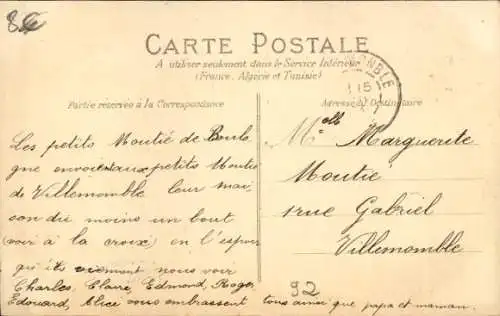 84
CARTE POSTALE
A utiliser seulement dans le Service Intérieur
(France, Algérie et Tunisie)
Partie réservée à la Correspondance
Adresse du Destinataire
15
Les petits Moutié de Boulo
gne envoient aux petits Moutié
de Villemomble leur mai
son du moins un bout
(voir à la croix) en l'espoir
qu'ils viennent nous voir
Charles, Claire, Edmond, Roger
Edouard, Alice vous embrassent tous ainsi que papa et maman.
Melle Marguerite
Moutié
1 rue Gabriel
Villemomble
92